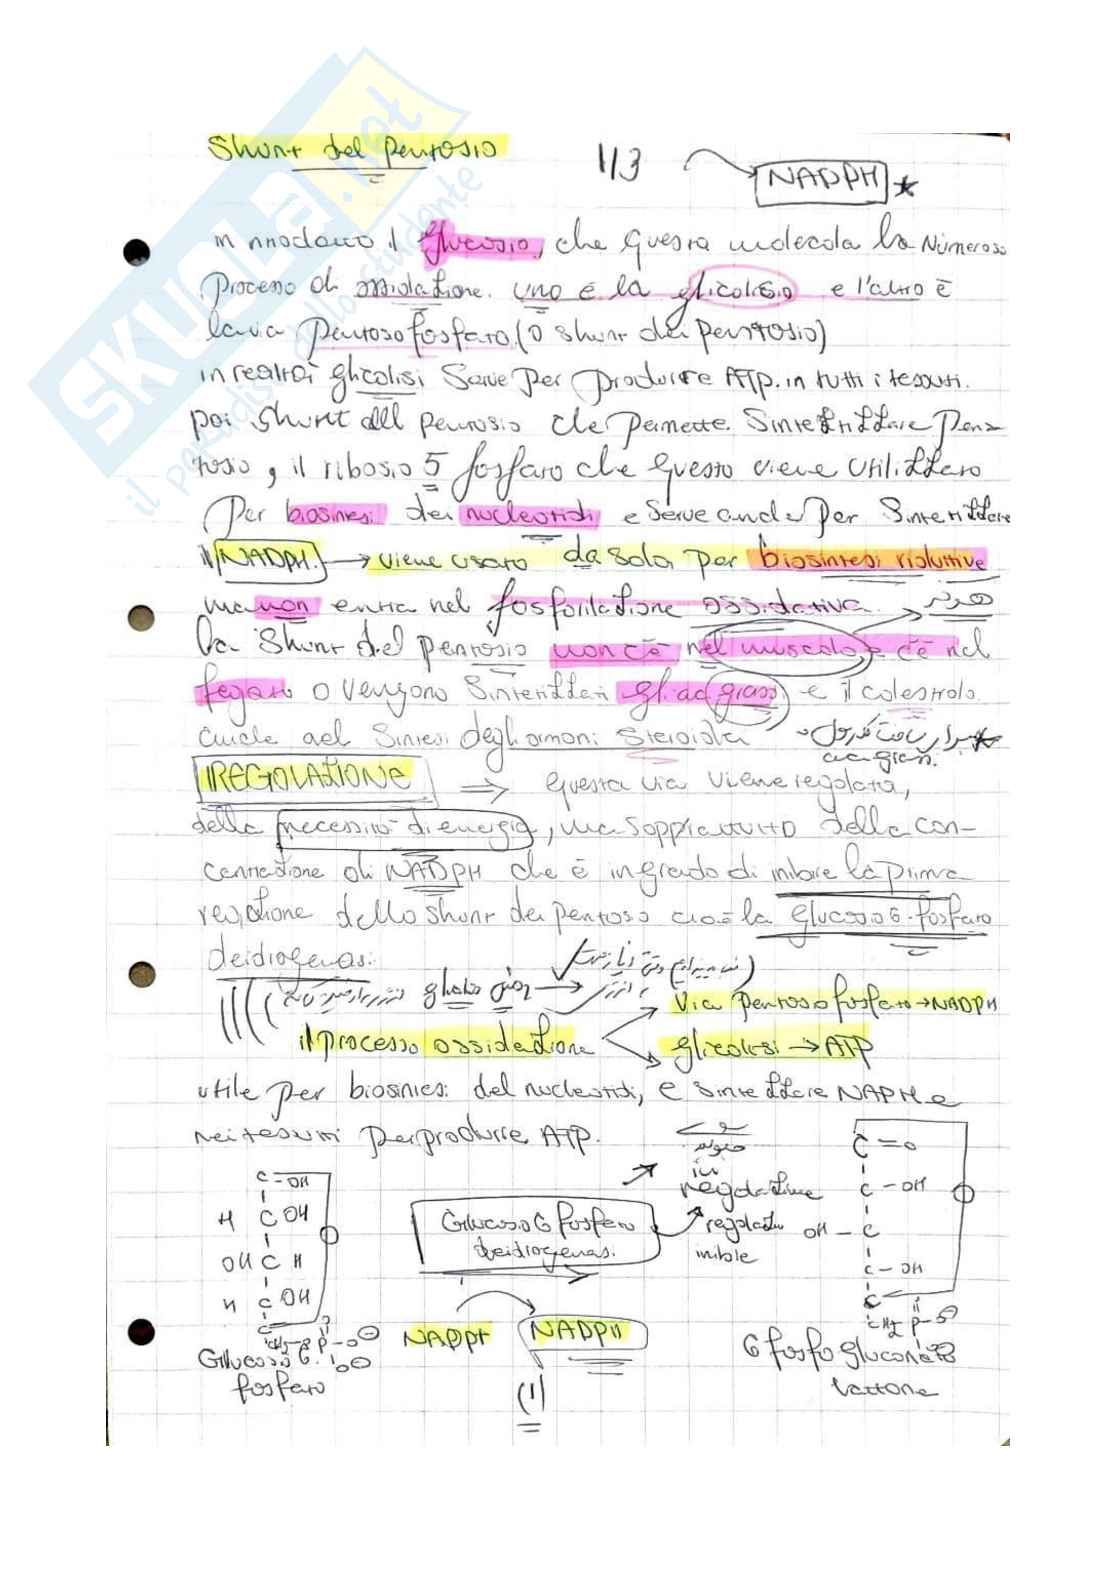 Shunt del pentosio
113
NADPH
il glucosio, che questa molecola ha Numeroso
Processo di ossidazione. uno è la glicolisio e l'altro è
la via pentoso fosfato, (o shunt dei pentosio)
in realtà glicolisi Serve per produrre ATP. in tutti i tessuti.
poi shunt del pentosio che permette Sintetizzare pen
tosio, il ribosio 5 fosfato che questo viene utilizzato
Per biosintesi dei nucleotidi e serve anche per Sintetizzare
il NADPH. → viene usato da sola per biosintesi riduttive
ma non entra nel fosforilazione ossidativa.
la shunt del pentosio non c'è nel muscolo, e c'è nel
fegato o vengono Sintetizzati gli ac grassi e il colestrolo.
anche nel Sintesi degli ormoni Steroidia
ac. grassi.
REGOLAZIONE ⇒ questa via viene regolata,
della necessità di energia, ma soprattutto della con-
centrazione di NADPH che è in grado di inibire la prima
reazione dello shunt dei pentoso cioè la glucosio 6-fosfato
deidrogenasi.
Via pentoso fosfato → NADPH
il processo ossidazione
glicolisi → ATP
utile per biosintesi del nucleotidi, e sintetizzare NAPH e
nei tessuti per produrre ATP.
C-OH
H C OH
OH C H
H C OH
C
Glucosio 6
fosfato
Glucosio 6 fosfato
deidrogenasi.
in
regolazione
regolation
inibile
NADP+
NADPH
(1)
C=O
C-OH
OH-C
C-OH
C
CH2 P-O
6 fosfo glucono
lattone
SKUOLA.net
il paradiso dello studente